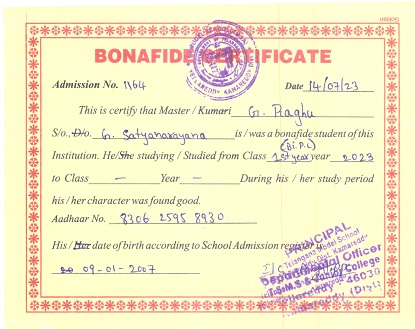 BONAFIDE CERTIFICATE
Admission No. 1164 Date 14/07/23
This is certify that Master / Kumari G. Raghu
S/o., D/o. G. Satyanarayana is / was a bonafide student of this
(Bi.P.C)
Institution. He/She studying / Studied from Class 1st year year 2023
to Class – Year – During his / her study period
his / her character was found good.
Aadhaar No. 8306 2595 8930
His / Her date of birth according to School Admission register is
09-01-2007
PRINCIPAL
Telangana Model School
Departmental Officer
College